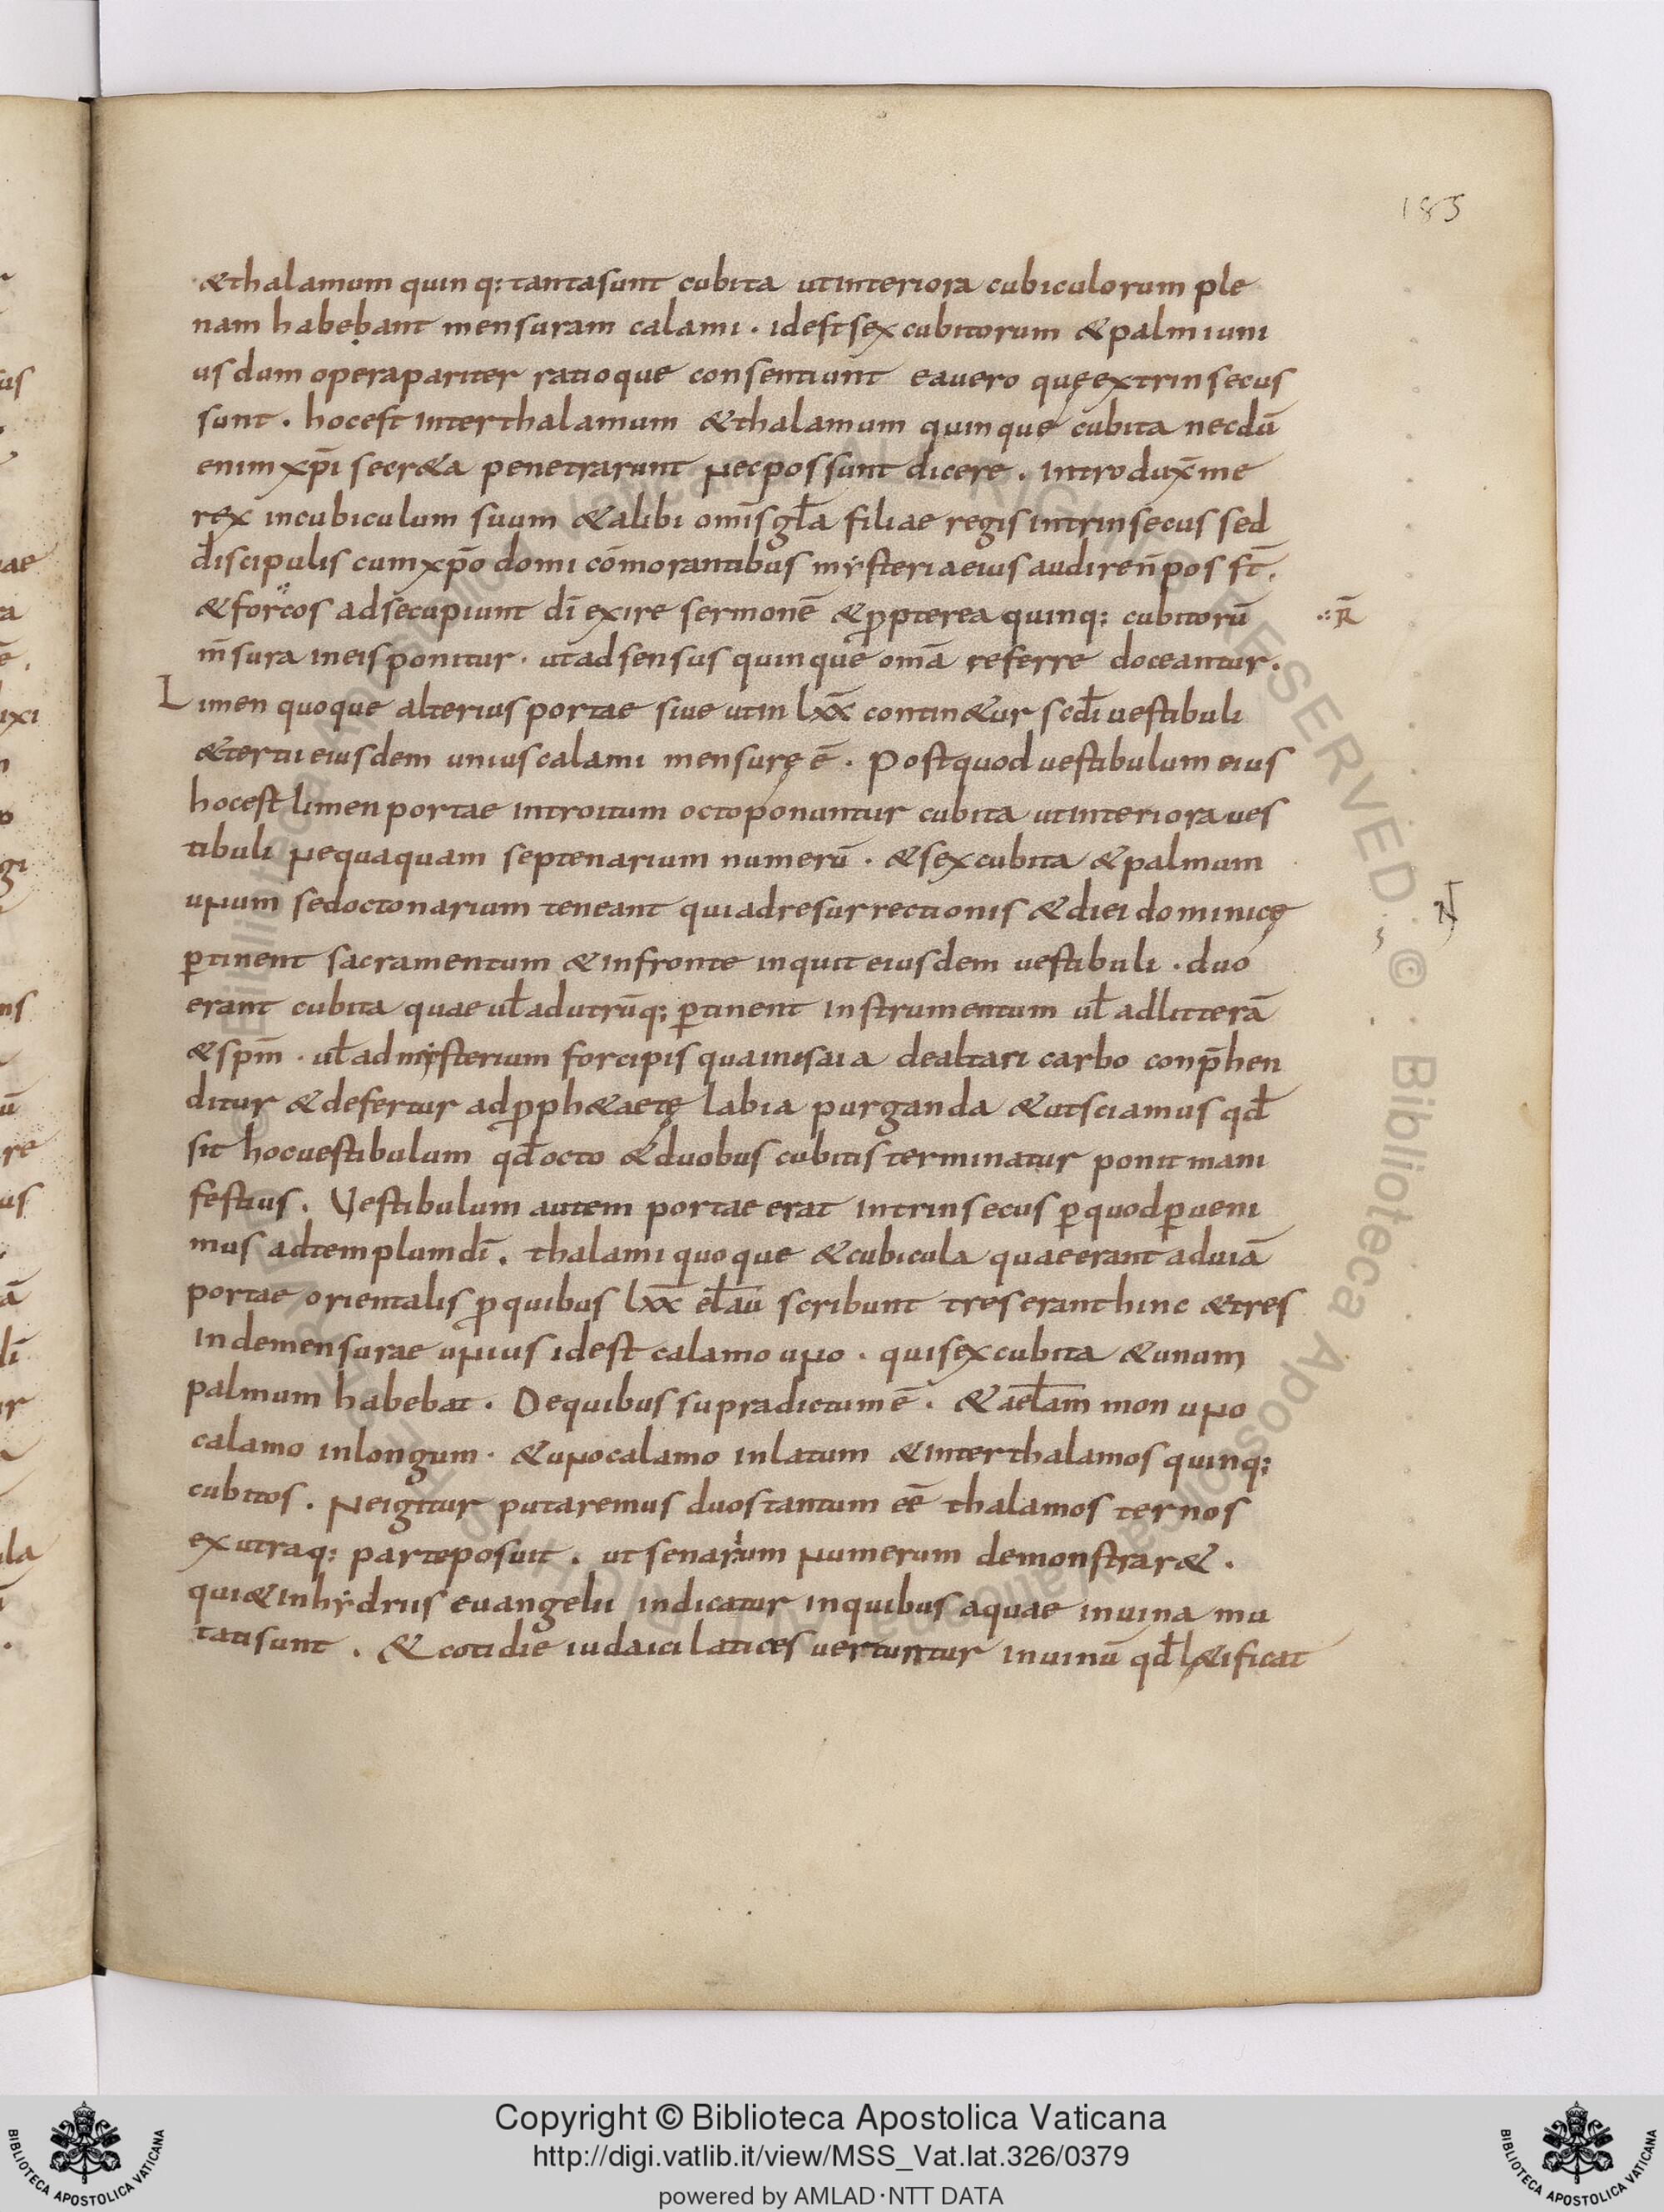 185
&thalamum quinq: tanta sunt cubita ut interiora cubiculorum ple
nam habebant mensuram calami . id est sex cubitorum & palmi uni
us dum opera pariter ratioque consentiunt ea vero quę extrinsecus
sunt . hoc est inter thalamum & thalamum quinque cubita necdū
enim xp̄i secr&a penetrarunt nec possunt dicere . introdux̄ me
rex in cubiculum suum & alibi om̄is gl̄a filiae regis intrinsecus sed
discipulis cum xp̄o domi cōmorantibus mẏsteria eius audire n̄ pos st̄ .
& ad se cupiunt dī exire sermonē & ꝓpterea quinq: cubitorū
∴ R̄
m̄sura in eis ponitur . ut ad sensus quinque om̄a referre doceantur .
Limen quoque alterius portae sive ut in lxx̄ contin&ur scd̄i vestibuli
& tertii eiusdem unius calami mensurę ē . Post quod vestibulum eius
hoc est limen portae introitum octo ponuntur cubita ut interiora ves
tibuli nequaquam septenarium numerū . & sex cubita & palmum
unum sed octonarium teneant qui ad resurrectionis & diei dominicę
ꝑtinent sacramentum & in fronte inquit eiusdem vestibuli . duo
erant cubita quae ul̄ ad utrūq; ꝑtinent instrumentum ul̄ ad litterā
& sp̄m . ul̄ ad mẏsterium forcipis qua in isaia de altari carbo conp̄hen
ditur & defertur ad ꝓph&aetę labia purganda & ut sciamus qd̄
sit hoc vestibulum qd̄ octo & duobus cubitis terminatur ponit mani
festius . Vestibulum autem portae erat intrinsecus ꝑ quod ꝑveni
mus ad templum dī . thalami quoque & cubicula quae erant ad viā
portae orientalis ꝓ quibus lxx̄ el̄au scribunt tres erant hinc & tres
inde mensurae unius id est calamo uno . qui sex cubita & unum
palmum habebat . De quibus supra dictum ē . & ael̄am mon uno
calamo in longum . & uno calamo in latum & inter thalamos quinq;
cubitos . ne igitur putaremus duos tantum eē thalamos ternos
ex utraq: parte posuit . ut senarium numerum demonstrar& .
qui & in hẏdriis evangelii indicatur in quibus aquae in vina mu
tati sunt . & cotidie iudaici latices vertuntur in vinū qd̄ l&ificat
Copyright © Biblioteca Apostolica Vaticana
http://digi.vatlib.it/view/MSS_Vat.lat.326/0379
powered by AMLAD·NTT DATA
BIBLIOTECA APOSTOLICA VATICANA
BIBLIOTECA APOSTOLICA VATICANA